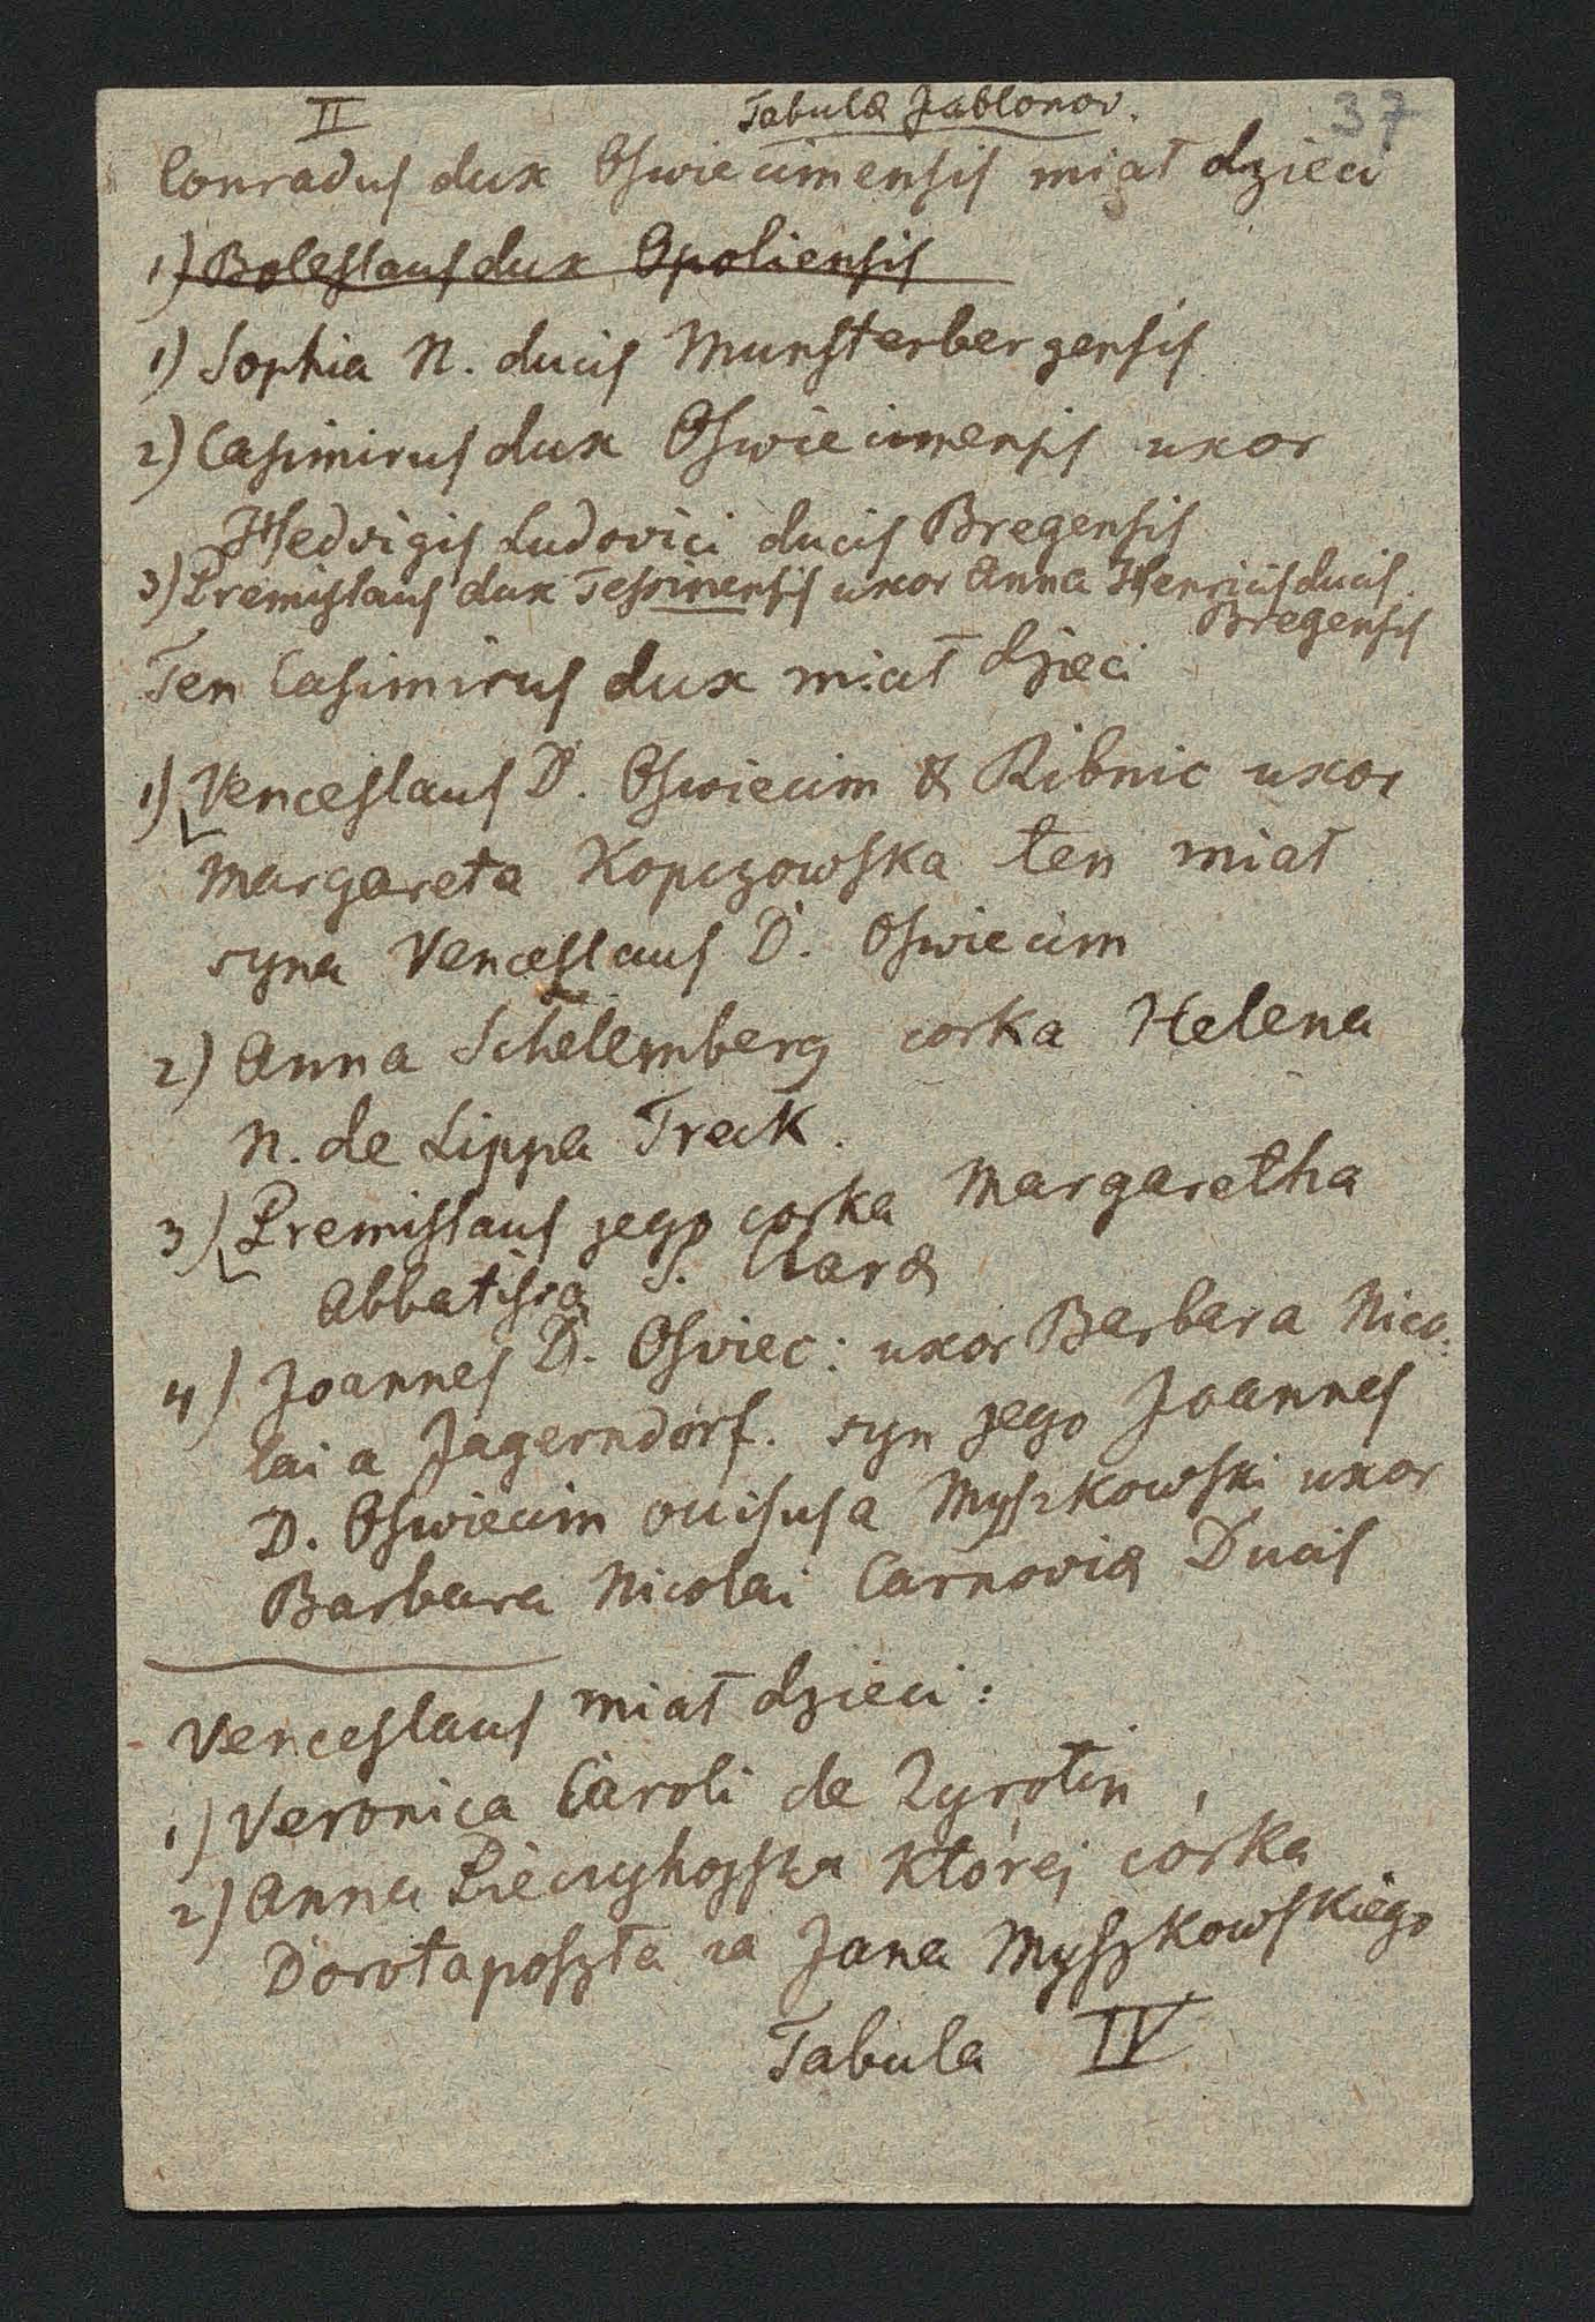 II Tabulæ Jablonov. 37
Conradus dux Oswiecimensis miał dzieci
1) Boleslaus dux Opoliensis
1) Sophia N. ducis Munsterbergensis
2) Casimirus dux Oswiecimensis uxor
Hedvigis Ludovici ducis Bregensis
3) Premislaus dux Tessinensis uxor Anna Henrici ducis
Bregensis
Ten Casimirus dux miał dzieci
1) Venceslaus D. Oswiecim & Ribnic uxor
Margareta Kopczowska ten miał
syna Venceslaus D. Oswiecim
2) Anna Schelemberg corka Helena
N. de Lippa Treck.
3) Premislaus jego corka Margaretha
Abbatissa S. Claræ
4) Joannes D. Osviec: uxor Barbara Nico-
lai a Jagerndorf. syn jego Joannes
D. Oswiecim occisus a Myszkowski uxor
Barbara Nicolai Carnoviæ Ducis
Venceslaus miał dzieci:
1) Veronica Caroli de Zyrotin
2) Anna której córka
Dorota poszła za Jana Myszkowskiego
Tabula IV